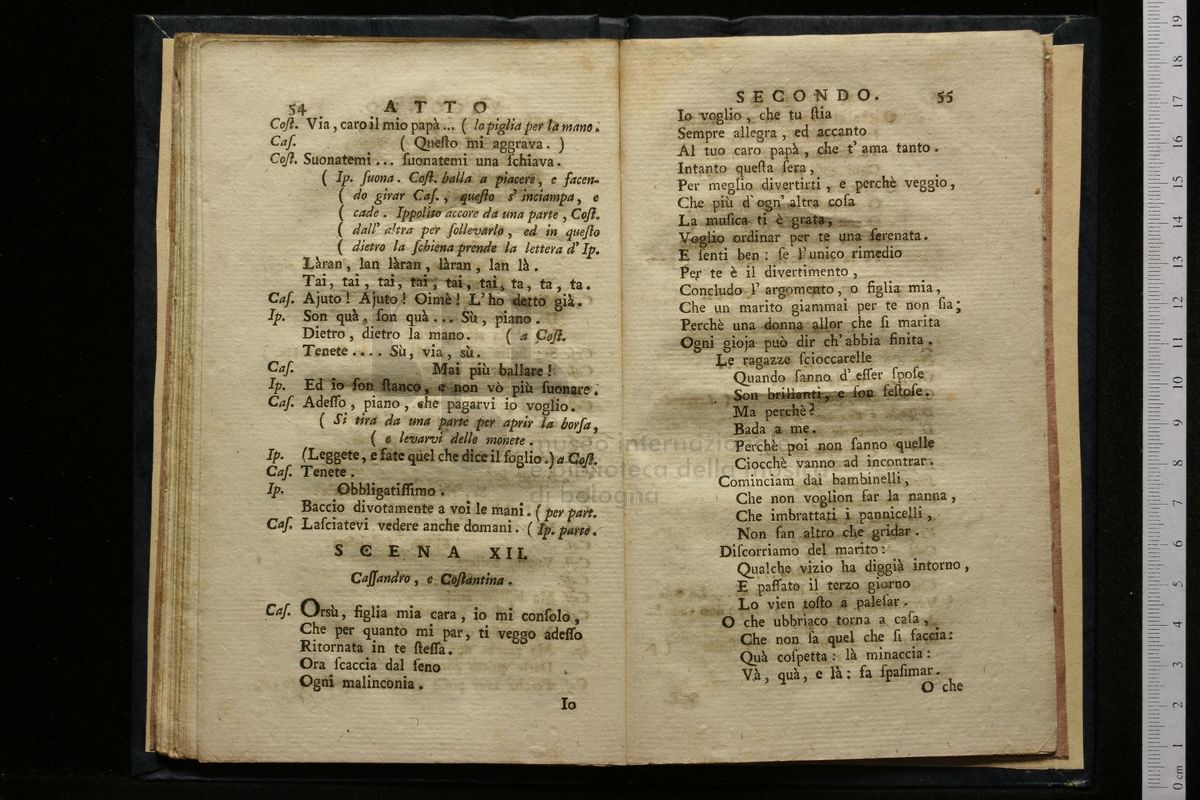 54 ATTO
Coſt. Via, caro il mio papà ... ( lo piglia per la mano.
Caſ. ( Queſto mi aggrava. )
Coſt. Suonatemi ... ſuonatemi una ſchiava.
( Ip. ſuona. Coſt. balla a piacere, e facen-
( do girar Caſ., queſto s'inciampa, e
( cade. Ippolito accore da una parte, Coſt.
( dall' altra per ſollevarlo, ed in queſto
( dietro la ſchiena prende la lettera d' Ip.
Làran, lan làran, làran, lan là.
Tai, tai, tai, tai, tai, tai, ta, ta, ta.
Caſ. Ajuto! Ajuto! Oimè! L'ho detto già.
Ip. Son quà, ſon quà ... Sù, piano.
Dietro, dietro la mano. ( a Coſt.
Tenete .... Sù, via, sù.
Caſ. Mai più ballare!
Ip. Ed io ſon ſtanco, e non vò più ſuonare.
Caſ. Adeſſo, piano, che pagarvi io voglio.
( Si tira da una parte per aprir la borſa,
( e levarvi delle monete.
Ip. (Leggete, e fate quel che dice il foglio.) a Coſt.
Caſ. Tenete.
Ip. Obbligatiſſimo.
Baccio divotamente a voi le mani. ( per part.
Caſ. Laſciatevi vedere anche domani. ( Ip. parte.
SCENA XII.
Caſſandro, e Coſtantina.
Caſ. Orsù, figlia mia cara, io mi conſolo,
Che per quanto mi par, ti veggo adeſſo
Ritornata in te ſteſſa.
Ora ſcaccia dal ſeno
Ogni malinconia.
Io
SECONDO. 55
Io voglio, che tu ſtia
Sempre allegra, ed accanto
Al tuo caro papà, che t' ama tanto.
Intanto queſta ſera,
Per meglio divertirti, e perchè veggio,
Che più d' ogn' altra coſa
La muſica ti è grata,
Voglio ordinar per te una ſerenata.
E ſenti ben: ſe l'unico rimedio
Per te è il divertimento,
Concludo l' argomento, o figlia mia,
Che un marito giammai per te non ſia;
Perchè una donna allor che ſi marita
Ogni gioja può dir ch' abbia finita.
Le ragazze ſcioccarelle
Quando ſanno d' eſſer ſpoſe
Son brillanti, e ſon feſtoſe.
Ma perchè?
Bada a me.
Perchè poi non ſanno quelle
Ciocchè vanno ad incontrar.
Cominciam dai bambinelli,
Che non voglion far la nanna,
Che imbrattati i pannicelli,
Non fan altro che gridar.
Diſcorriamo del marito:
Qualche vizio ha diggià intorno,
E paſſato il terzo giorno
Lo vien toſto a paleſar.
O che ubbriaco torna a caſa,
Che non ſa quel che ſi faccia:
Quà coſpetta: là minaccia:
Và, quà, e là: fa ſpaſimar.
O che
museo internazionale
e biblioteca della musica
di bologna